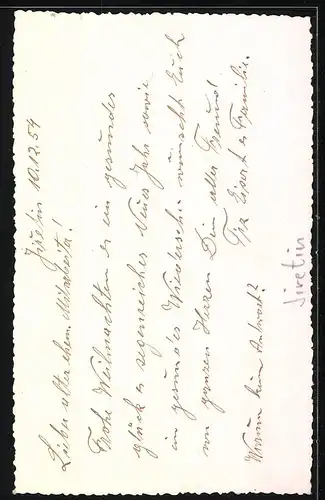 Jiretin 10.12.54
Lieber alter ehem. Mitarbeiter!
Frohe Weihnachten u. ein gesundes
glück u. segenreiches Neues Jahr sowie
ein gesundes Wiederseh. wünscht Euch
von ganzen Herzen Dein alter Freund
Fra Eisert u. Familie.
Warum keine Antwort?
Jiretin